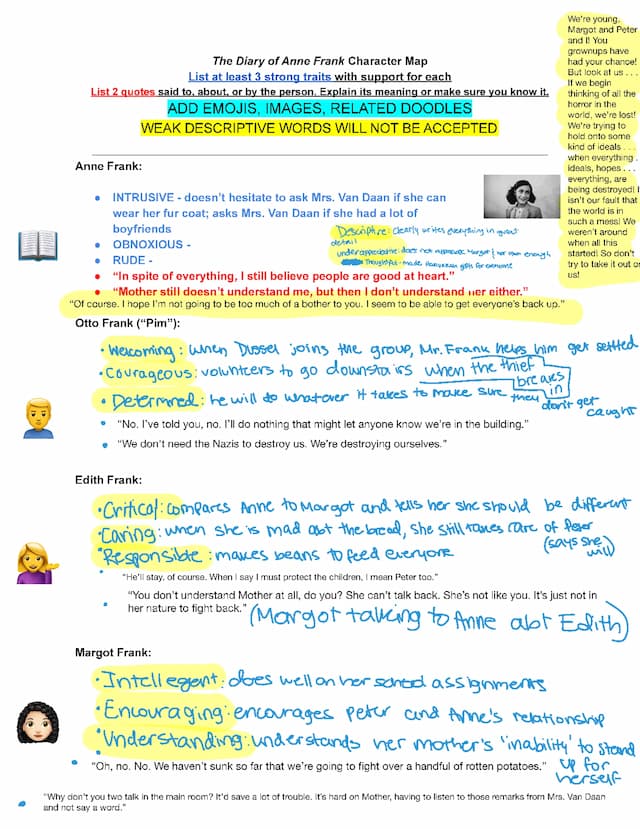 The Diary of Anne Frank Character Map
List at least 3 strong traits with support for each
List 2 quotes said to, about, or by the person. Explain its meaning or make sure you know it.
ADD EMOJIS, IMAGES, RELATED DOODLES
WEAK DESCRIPTIVE WORDS WILL NOT BE ACCEPTED
We're young,
Margot and Peter
and I! You
grownups have
had your chance!
But look at us . . .
If we begin
thinking of all the
horror in the
world, we're lost!
We're trying to
hold onto some
kind of ideals . . .
when everything .
ideals, hopes . . .
everything, are
being destroyed! I
isn't our fault that
the world is in
such a mess! We
weren't around
when all this
started! So don't
try to take it out on
us!
Anne Frank:
● INTRUSIVE - doesn't hesitate to ask Mrs. Van Daan if she can
wear her fur coat; asks Mrs. Van Daan if she had a lot of
boyfriends
● OBNOXIOUS -
● RUDE -
Descriptive: clearly writes everything in great
detail
underappreciative: does not appreciate Margot/her mom enough
Thoughtful - made Hanukkah gifts for everyone
● "In spite of everything, I still believe people are good at heart."
● "Mother still doesn't understand me, but then I don't understand her either."
"Of course. I hope I'm not going to be too much of a bother to you. I seem to be able to get everyone's back up."
Otto Frank ("Pim"):
• Welcoming: when Dussel joins the group, Mr. Frank helps him get settled
• Courageous: volunteers to go downstairs when the thief
breaks
in
• Determined: he will do whatever it takes to make sure they don't get
caught
• "No. I've told you, no. I'll do nothing that might let anyone know we're in the building."
• "We don't need the Nazis to destroy us. We're destroying ourselves."
Edith Frank:
• Critical: compares Anne to Margot and tells her she should be different
• Caring: when she is mad abt the bread, she still takes care of Peter
(says she
will)
• Responsible: makes beans to feed everyone
• "He'll stay, of course. When I say I must protect the children, I mean Peter too."
• "You don't understand Mother at all, do you? She can't talk back. She's not like you. It's just not in
her nature to fight back."
(Margot talking to Anne abt Edith)
Margot Frank:
• Intellegent: does well on her school assignments
• Encouraging: encourages peter and Anne's relationship
• Understanding: understands her mother's 'inability' to stand
up for
herself
• "Oh, no. No. We haven't sunk so far that we're going to fight over a handful of rotten potatoes."
• "Why don't you two talk in the main room? It'd save a lot of trouble. It's hard on Mother, having to listen to those remarks from Mrs. Van Daan
and not say a word."